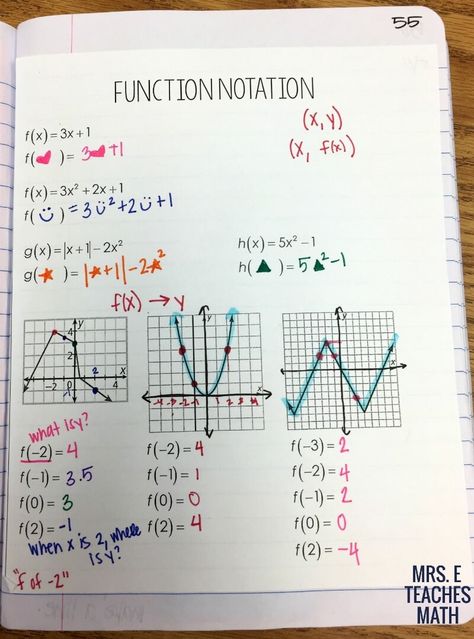 55
FUNCTION NOTATION
f(x) = 3x + 1
f(♥) = 3♥+1
(x, y)
(x, f(x))
f(x) = 3x² + 2x + 1
f(☺) = 3☺²+2☺+1
g(x) = |x + 1| − 2x²
g(★) = |★+1|−2★²
h(x) = 5x² − 1
h(▲) = 5▲²−1
f(x) → y
y
4
2
−2
2
4
x
−1
y
x
-4 -3 -2 -1 1 2 3 4
y
x
what is y?
f(−2) = 4
f(−1) = 3.5
f(0) = 3
f(2) = -1
when x is 2, where
is y?
"f of -2"
f(−2) = 4
f(−1) = 1
f(0) = 0
f(2) = 4
f(−3) = 2
f(−2) = 4
f(−1) = 2
f(0) = 0
f(2) = -4
MRS. E
TEACHES
MATH